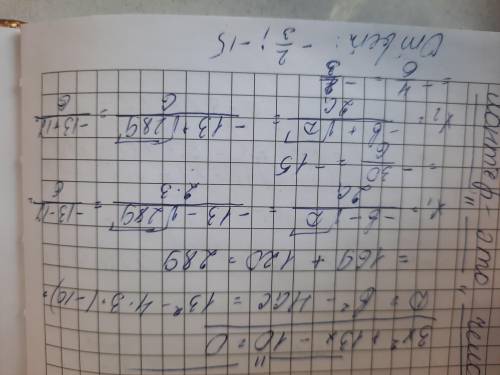 3x² + 13x - 10 = 0
D = b² - 4ac = 13² - 4·3·(-10) =
= 169 + 120 = 289
x₁ = (-b - √D)/2a = (-13 - √289)/(2·3) = (-13-17)/6 =
= -30/6 = -15
x₂ = (-b + √D)/2a = (-13 + √289)/6 = (-13+17)/6
= -4/6 = -2/3
Ответ: -2/3; -15
- это